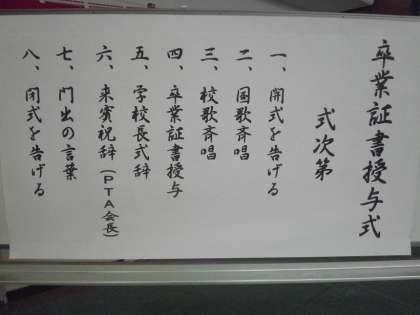 卒業証書授与式
式次第
一、開式を告げる
二、国歌斉唱
三、校歌斉唱
四、卒業証書授与
五、学校長式辞
六、来賓祝辞（PTA会長）
七、門出の言葉
八、閉式を告げる